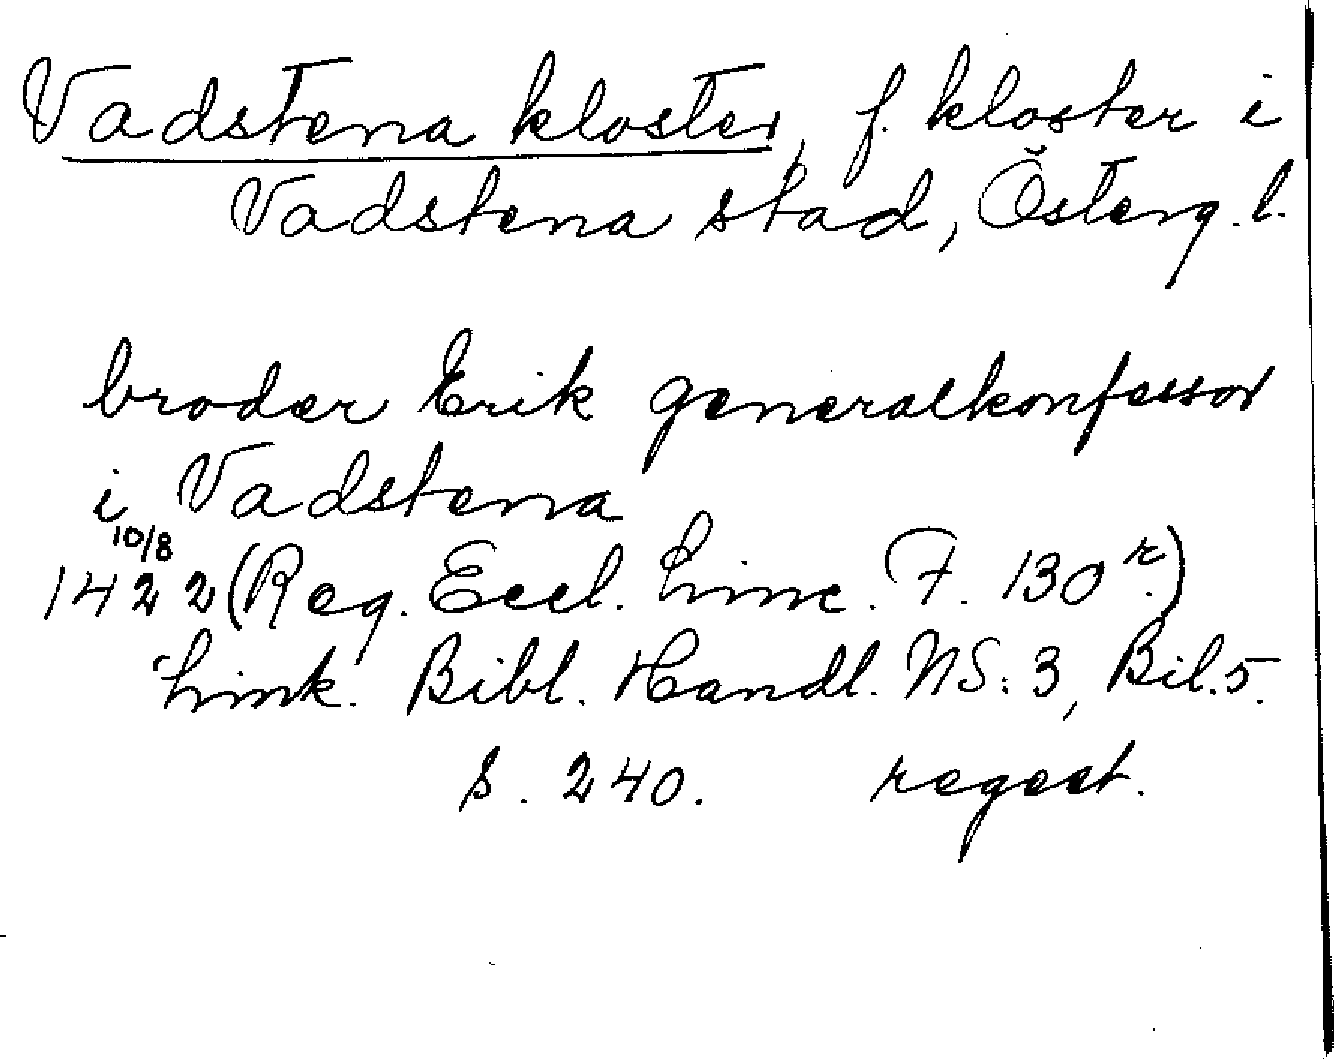 Vadstena kloster, f. kloster i
Vadstena stad, Österg. l.
broder Erik generalkonfessor
i Vadstena
10/8
1422 (Reg. Eccl. Linc. F. 130r.)
Link. Bibl. Handl. NS: 3, Bil. 5.
s. 240. regest.